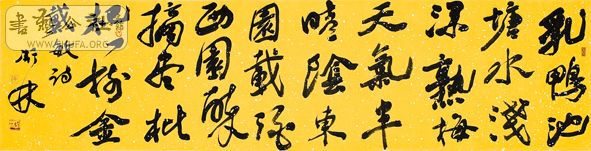 乳鴨池
塘水淺
深熟梅
天氣半
晴陰東
園載酒
西園醉
摘盡枇
杷一樹金
戴敏詩
林